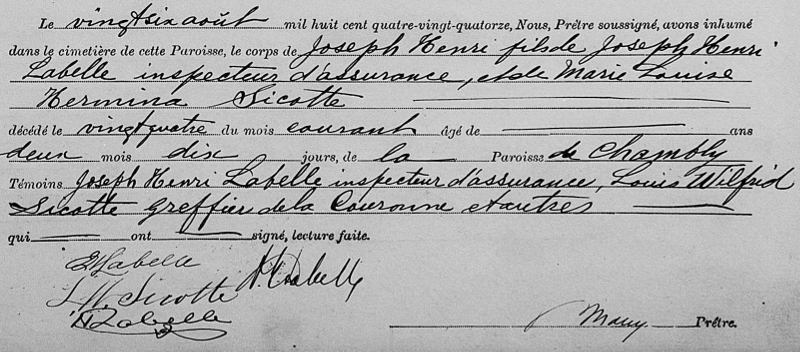 Le vingt six août mil huit cent quatre-vingt-quatorze, Nous, Prêtre soussigné, avons inhumé
dans le cimetière de cette Paroisse, le corps de Joseph Henri fils de Joseph Henri
Labelle inspecteur d'assurance, et de Marie Louise
Hermina Sicotte
décédé le vingt quatre du mois courant âgé de ans
deux mois dix jours, de la Paroisse de Chambly
Témoins Joseph Henri Labelle inspecteur d'assurance, Louis Wilfrid
Sicotte Greffier de la Couronne et autres
qui ont signé, lecture faite.
Labelle
Labelle
L. W. Sicotte
Labelle
Prêtre.